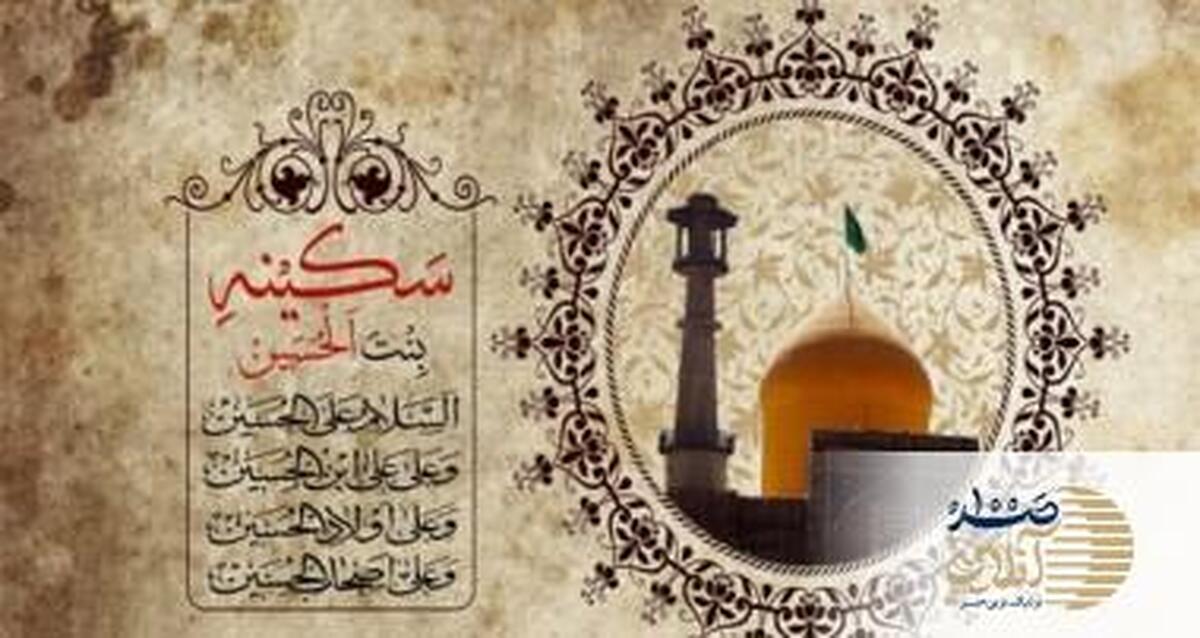 سَکینهِ
بِنْتَ اَلْحُسَین
السَّلامُ عَلَى الحُسَیْن
وَعَلى عَلى ابْنِ الحُسَیْن
وَعَلى اَوْلادِ الحُسَیْن
وَعَلى اَصْحابِ الحُسَیْن
صد
آنلاین